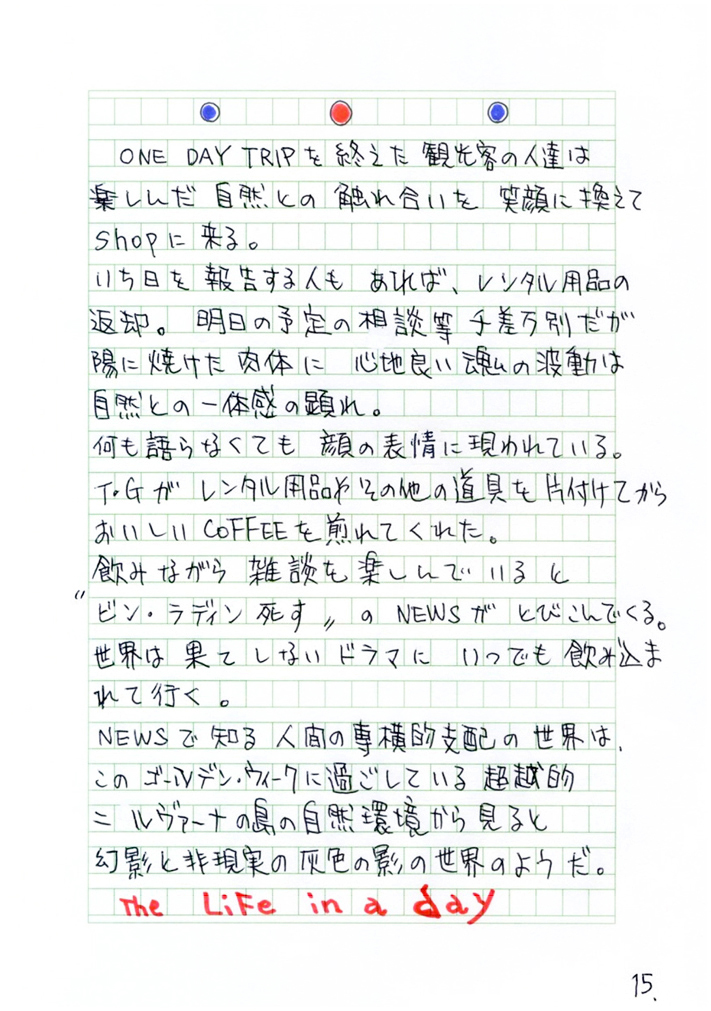 ONE DAY TRIPを終えた観光客の人達は
楽しんだ自然との触れ合いを笑顔に換えて
shopに来る。
いち日を報告する人もあれば、レンタル用品の
返却。明日の予定の相談等千差万別だが
陽に焼けた肉体に心地良い魂の波動は
自然との一体感の顕れ。
何も語らなくても顔の表情に現われている。
T・Gがレンタル用品やその他の道具を片付けてから
おいしいCOFFEEを煎れてくれた。
飲みながら雑談を楽しんでいると
〝ビン・ラディン死す〟のNEWSがとびこんでくる。
世界は果てしないドラマにいつでも飲み込ま
れて行く。
NEWSで知る人間の専横的支配の世界は、
このゴールデン・ウィークに過ごしている超越的
ニルヴァーナの島の自然環境から見ると
幻影と非現実の灰色の影の世界のようだ。
The LiFe in a day
15.